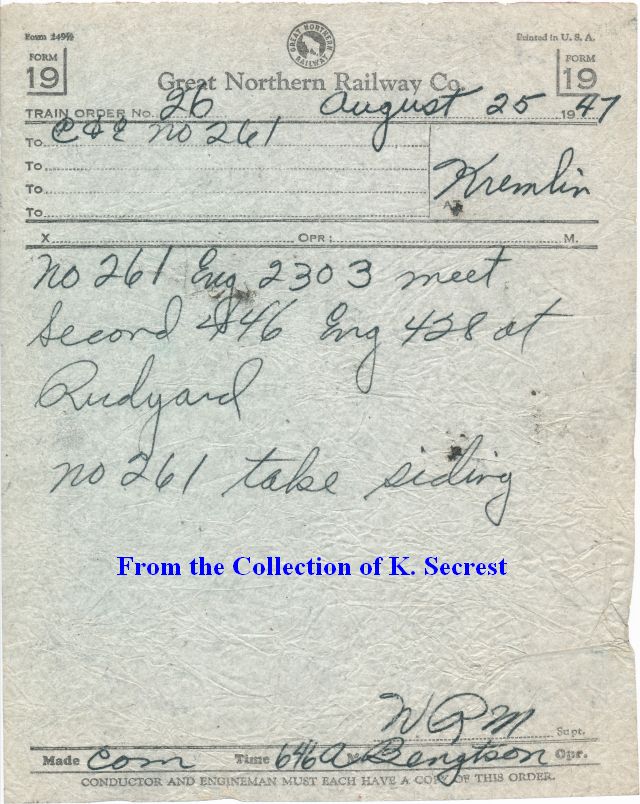 Form 249½
Printed in U. S. A.
GREAT NORTHERN RAILWAY
FORM 19
FORM 19
Great Northern Railway Co.
TRAIN ORDER No. 26 August 25 1947
To C & E No 261
To
To
To
AT Kremlin
X OPR: M.
No 261 Eng 2303 meet
Second 446 Eng 428 at
Rudyard
No 261 take siding
From the Collection of K. Secrest
W R M Supt.
Made Com Time 646 A M Bengtson Opr.
CONDUCTOR AND ENGINEMAN MUST EACH HAVE A COPY OF THIS ORDER.